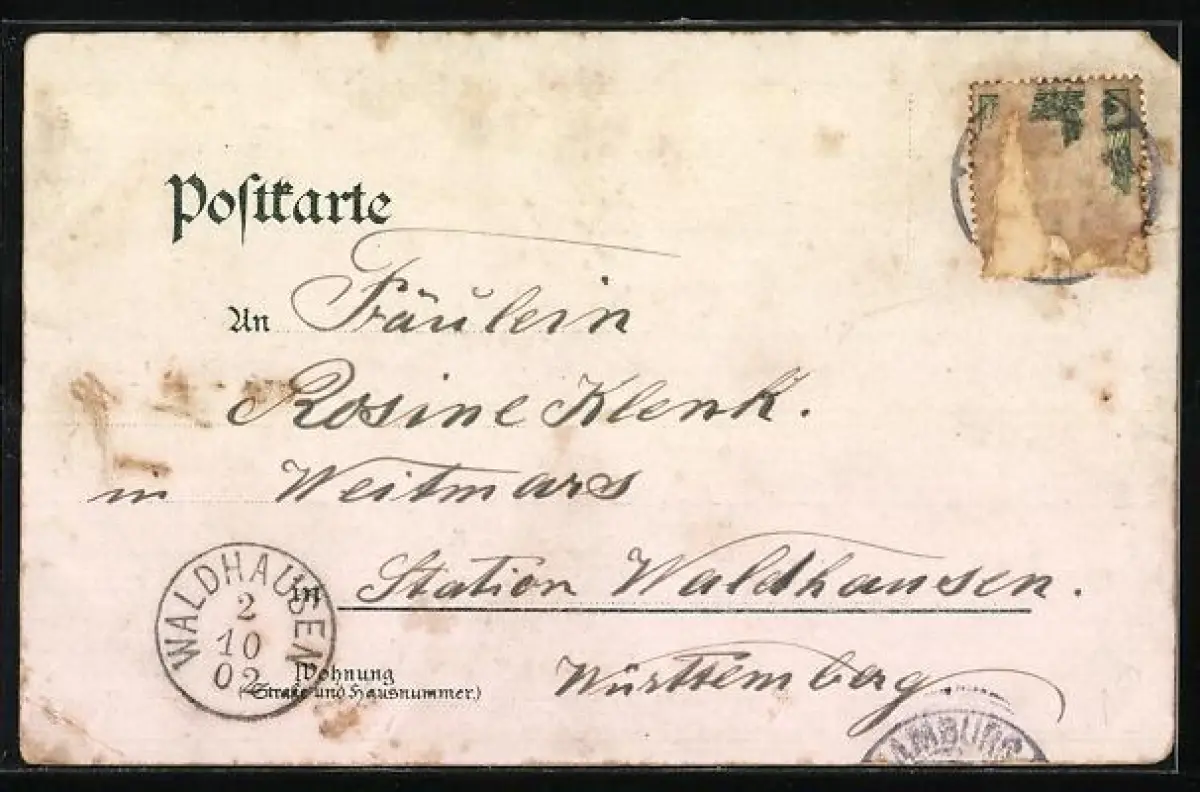 Poſtkarte
An Fräulein
Rosine Klenk.
in Weitmars
in Station Waldhausen.
Württemberg
Wohnung
(Straße und Hausnummer.)
WALDHAUSEN
2
10
02
HAMBURG